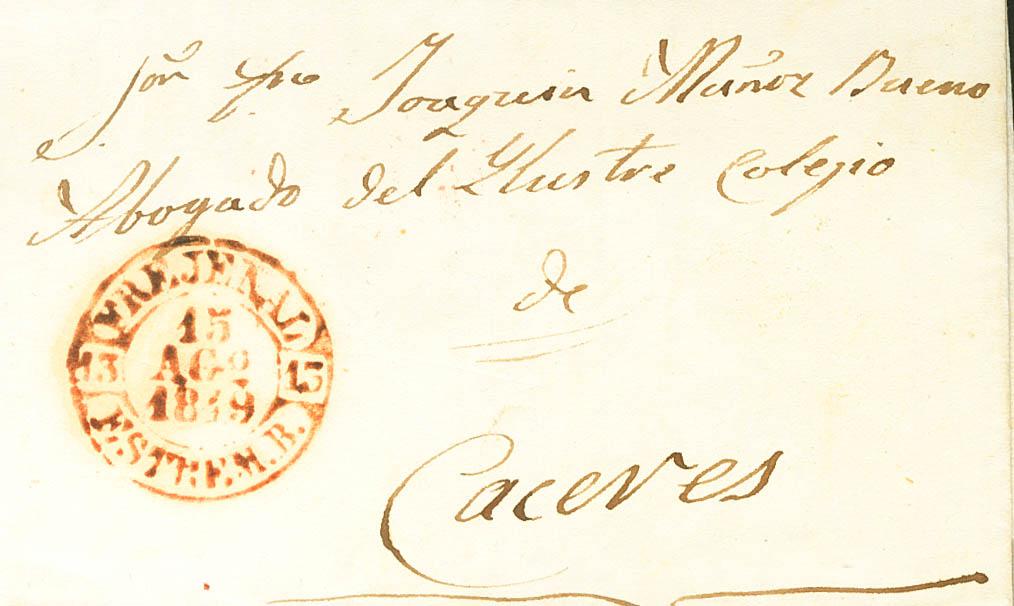 Sor. Dn. Joaquin Muñoz Bueno
Abogado del Ylustre Colegio
de
Caceres
FREJENAL
15
AGO
1849
13 15
ESTREM.B.